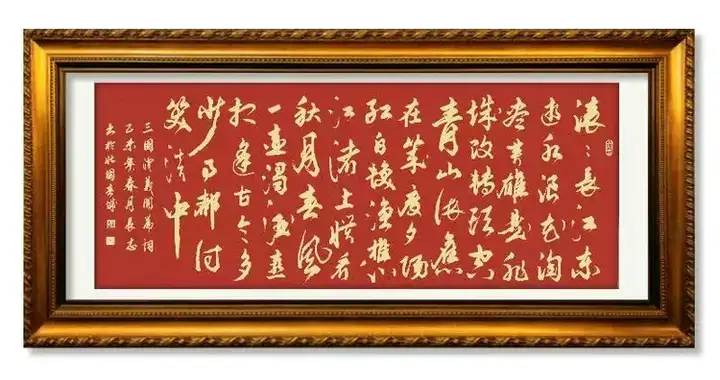 滚滚长江东
逝水浪花淘
尽英雄是非
成败转头空
青山依旧
在几度夕阳
红白发渔樵
江渚上惯看
秋月春风
一壶浊酒喜
相逢古今多
少事都付
笑谈中
三国演义开篇词
乙未年春月长志
书于北国